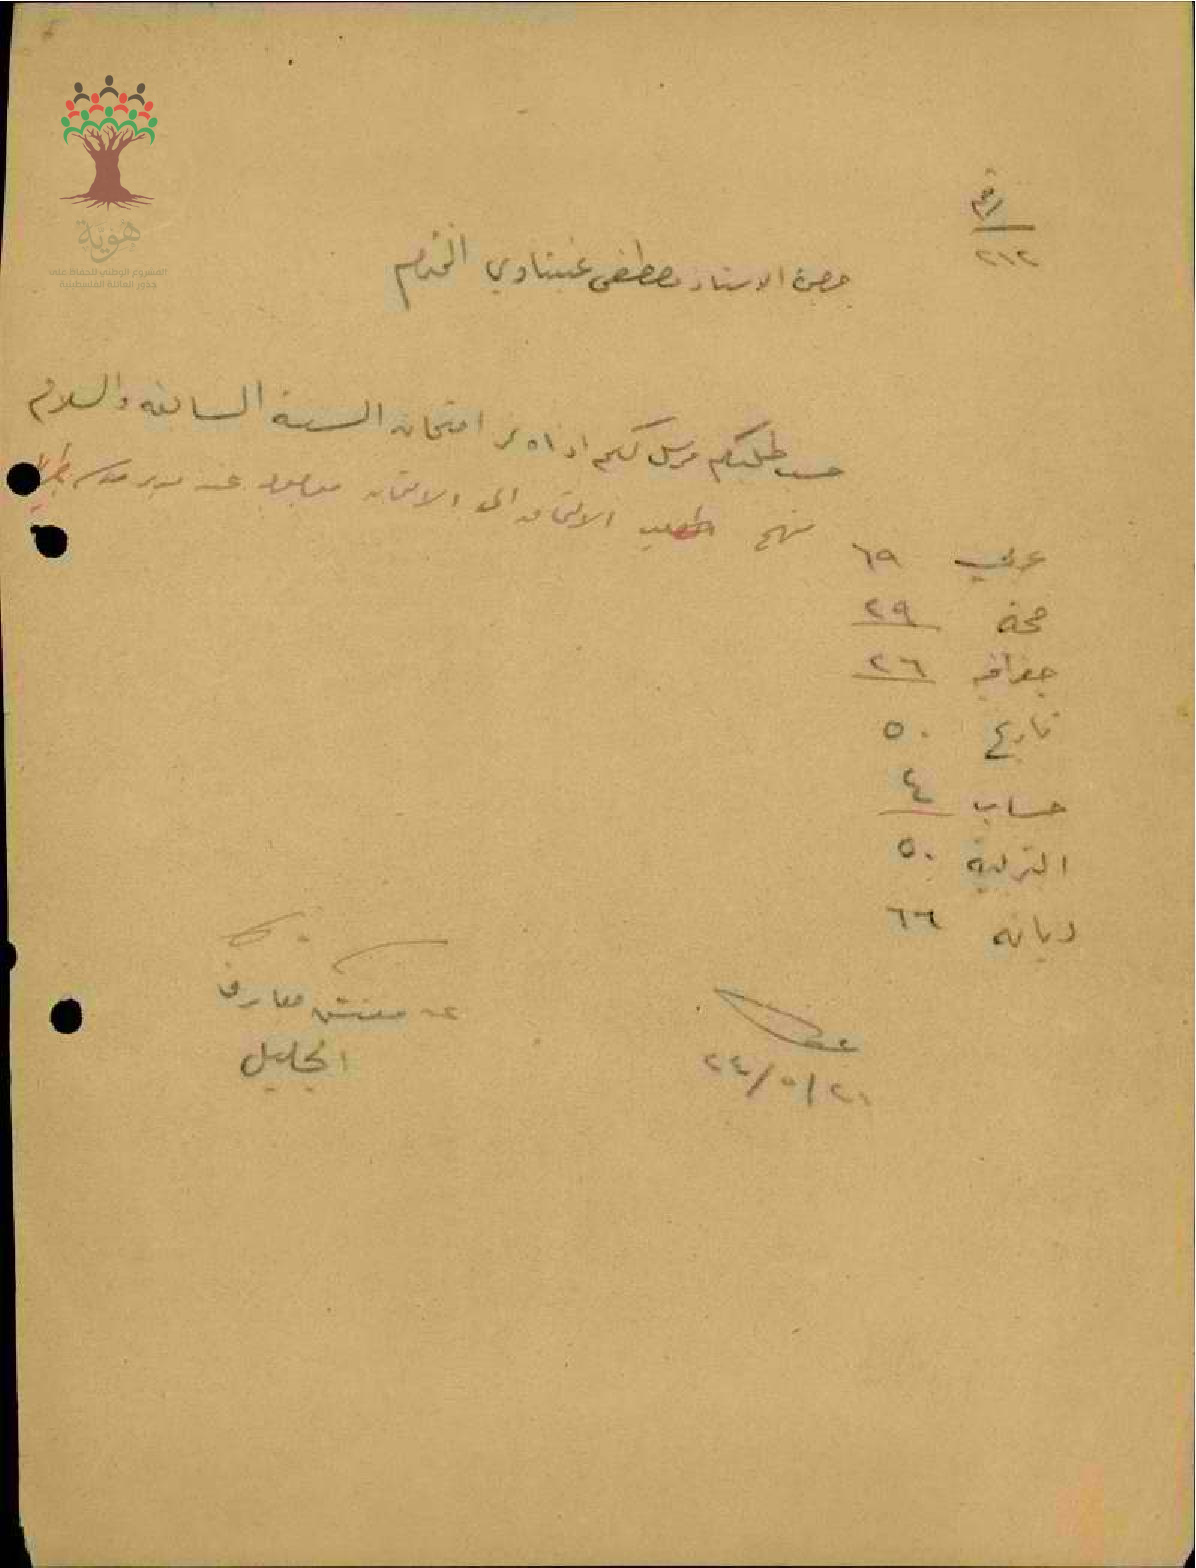 هويّة
المشروع الوطني للحفاظ على
جذور العائلة الفلسطينية
رقم
٢١٢
حضرة الاستاذ مصطفى غبيناوي المحترم
حسب طلبكم مرسل لكم ادناه امتحان السنة السابقة والسلام
الامتحان الى
عربي ٦٩
صحة ٢٩
جغرافيه ٢٦
تاريخ ٥٠
حساب ٤
التربية ٥٠
ديانه ٦٦
عن مفتش معارف
الجليل
٢٤/٥/٢١